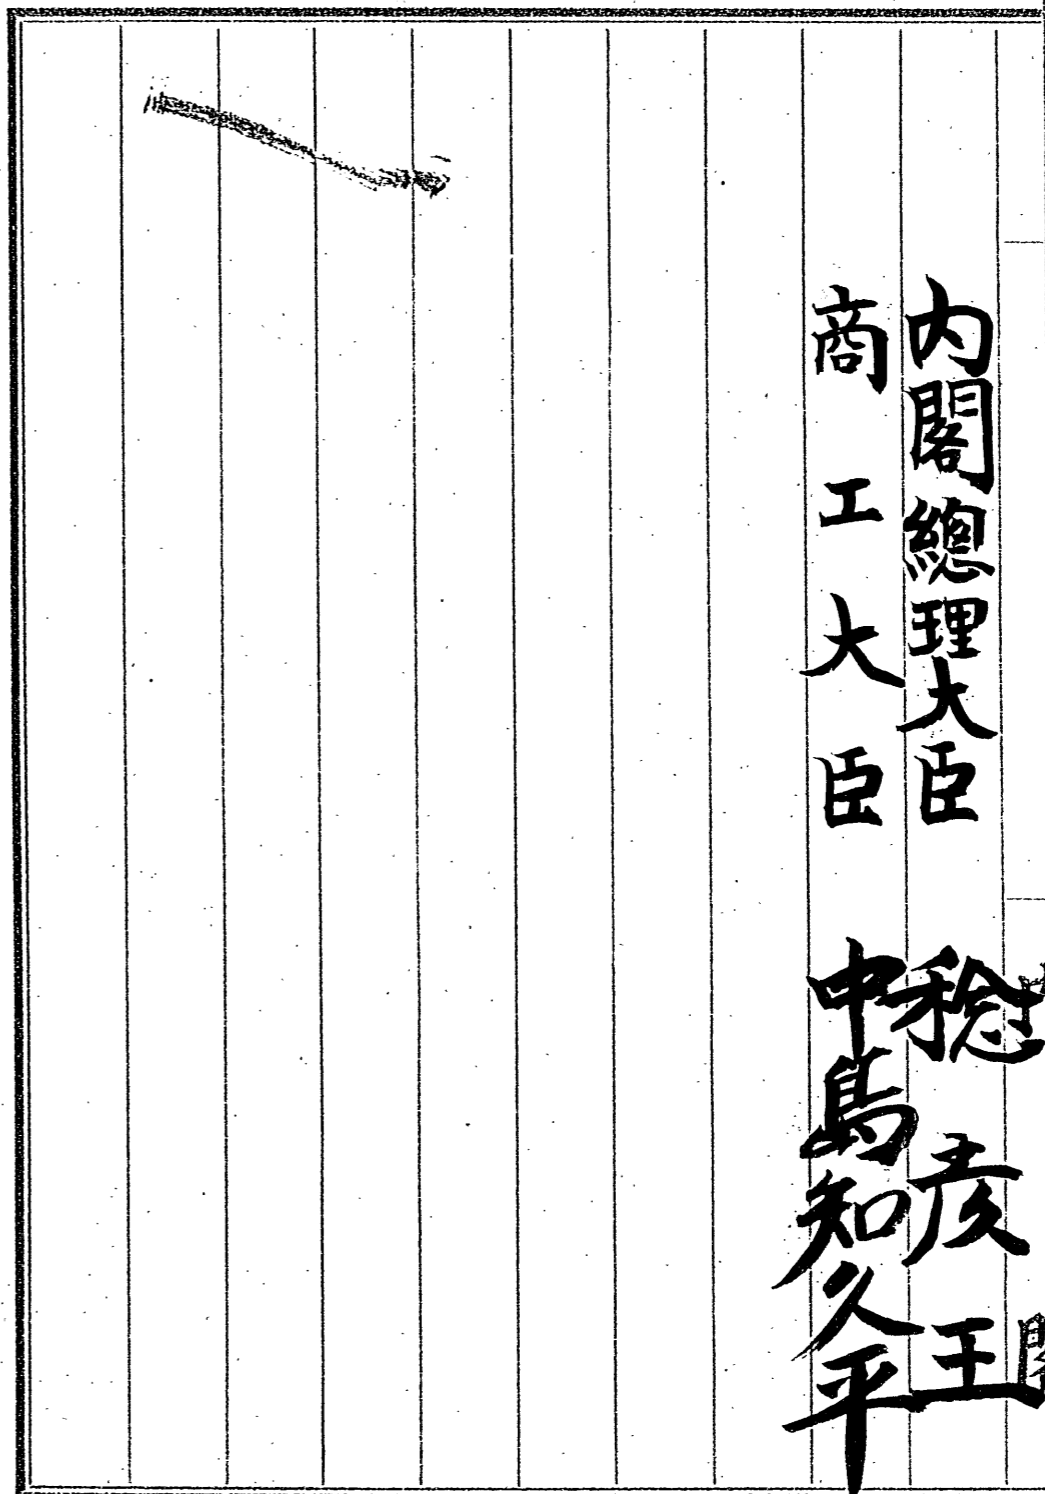 内閣總理大臣 稔彦王
商工大臣 中島知久平